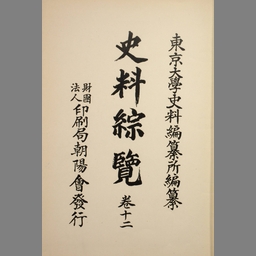 東京大學史料編纂所編纂
史料綜覽 卷十二
財團法人印刷局朝陽會發行